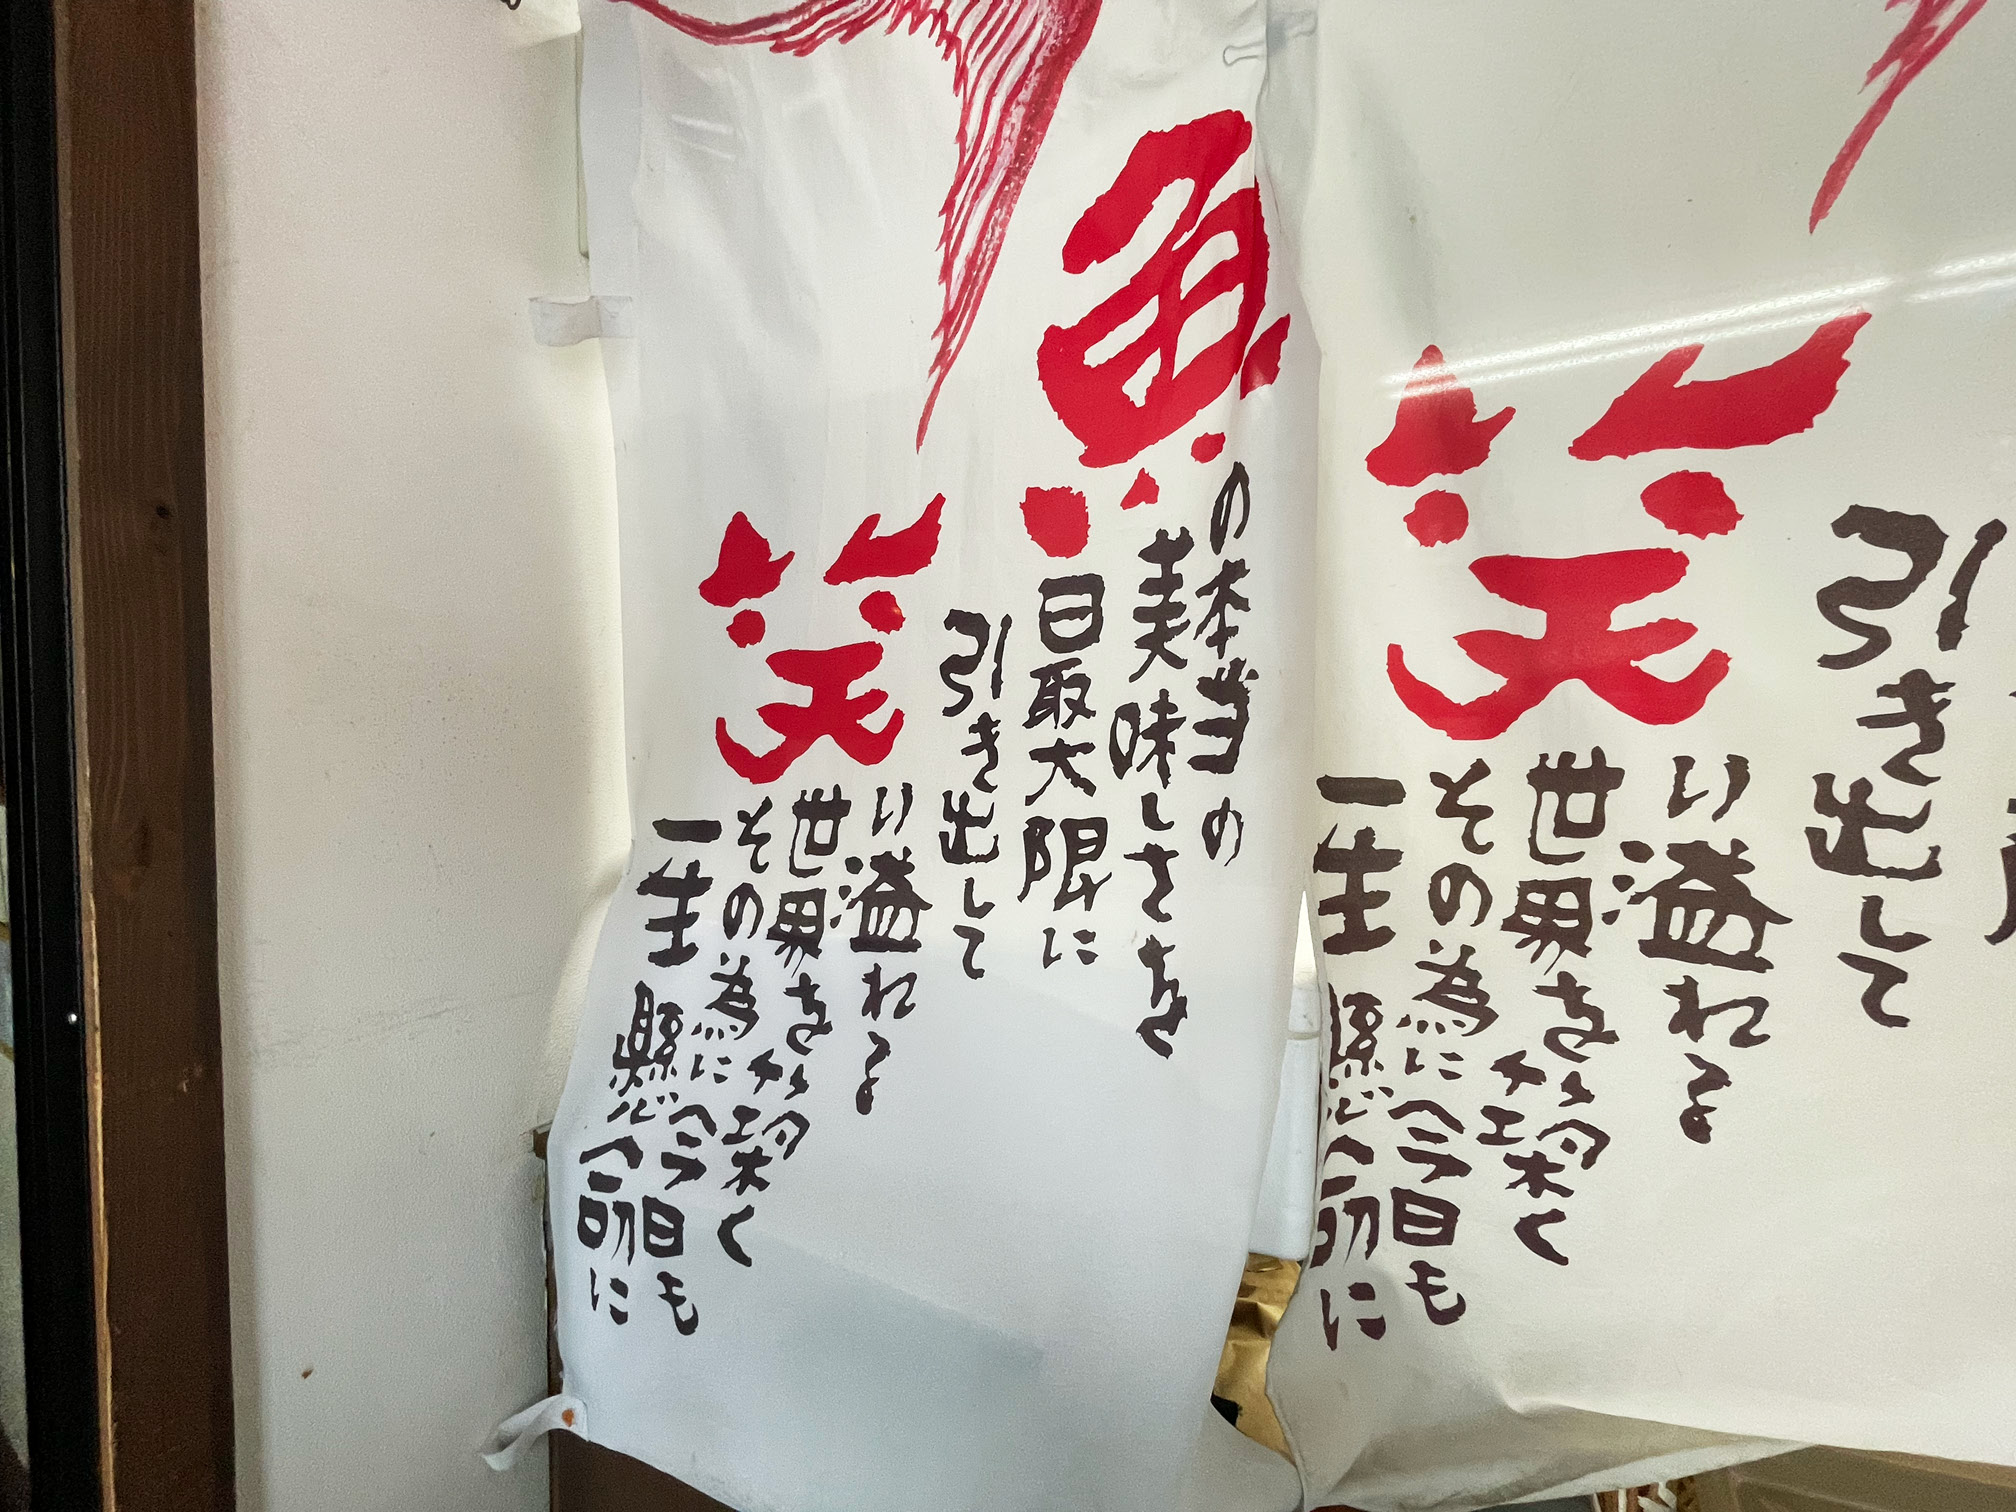 魚の本当の
美味しさを
最大限に
引き出して
笑い溢れる
世界を築く
その為に今日も
一生懸命に
引き出して
笑い溢れる
世界を築く
その為に今日も
一生懸命に